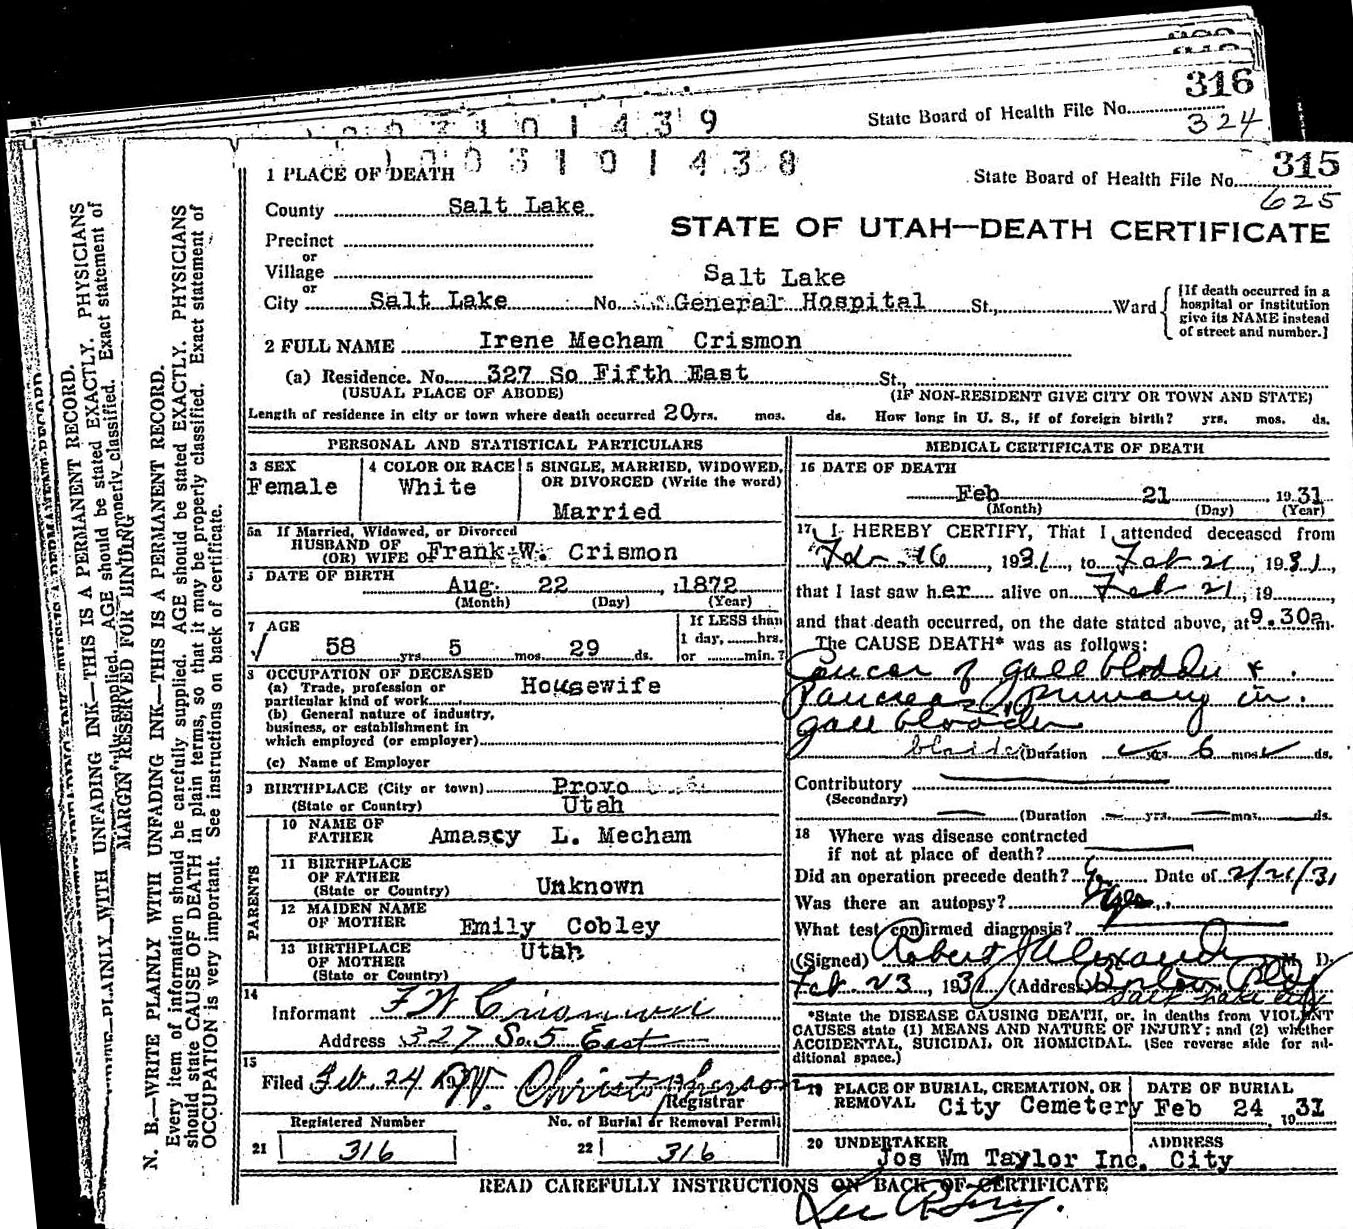 316
State Board of Health File No.
324
1 0 0 3 1 0 1 4 3 9
1 0 0 3 1 0 1 4 3 8
315
State Board of Health File No.
625
1 PLACE OF DEATH
County Salt Lake
STATE OF UTAH—DEATH CERTIFICATE
Precinct
or
Village
or
Salt Lake
City Salt Lake No. General Hospital St., Ward
[If death occurred in a
hospital or institution
give its NAME instead
of street and number.]
2 FULL NAME Irene Mecham Crismon
(a) Residence. No. 327 So Fifth East St.,
(USUAL PLACE OF ABODE) (IF NON-RESIDENT GIVE CITY OR TOWN AND STATE)
Length of residence in city or town where death occurred 20 yrs. mos. ds. How long in U. S., if of foreign birth? yrs. mos. ds.
PERSONAL AND STATISTICAL PARTICULARS
3 SEX
Female
4 COLOR OR RACE
White
5 SINGLE, MARRIED, WIDOWED,
OR DIVORCED (Write the word)
Married
5a If Married, Widowed, or Divorced
HUSBAND OF
(OR) WIFE OF Frank W. Crismon
DATE OF BIRTH
Aug 22, 1872
(Month) (Day) (Year)
7 AGE
58 yrs 5 mos. 29 ds.
If LESS than
1 day, hrs.
or min.?
8 OCCUPATION OF DECEASED
(a) Trade, profession or
particular kind of work Housewife
(b) General nature of industry,
business, or establishment in
which employed (or employer)
(c) Name of Employer
9 BIRTHPLACE (City or town) Provo
(State or Country) Utah
PARENTS
10 NAME OF
FATHER Amascy L. Mecham
11 BIRTHPLACE
OF FATHER
(State or Country) Unknown
12 MAIDEN NAME
OF MOTHER Emily Cobley
13 BIRTHPLACE
OF MOTHER Utah
(State or Country)
14
Informant F W Crismon
Address 327 So. 5 East
15
Filed Feb. 24 W. Christopherson
Registrar
Registered Number No. of Burial or Removal Permit
21 316 22 316
MEDICAL CERTIFICATE OF DEATH
16 DATE OF DEATH
Feb 21 1931
(Month) (Day) (Year)
17 I HEREBY CERTIFY, That I attended deceased from
Feb. 16, 1931, to Feb 21, 1931,
that I last saw her alive on Feb 21, 19,
and that death occurred, on the date stated above, at 9.30a m.
The CAUSE DEATH* was as follows:
Cancer of gall bladder &
Pancreas, primary in
gall bladder
bladder (Duration yrs. 6 mos. ds.
Contributory
(Secondary)
(Duration yrs. mos. ds.
18 Where was disease contracted
if not at place of death?
Did an operation precede death? Date of 2/21/31
Was there an autopsy? Yes
What test confirmed diagnosis?
(Signed) Robert J Alexander M. D.
Feb. 23, 1931 (Address) Boston Bldg
Salt Lake City
*State the DISEASE CAUSING DEATH, or, in deaths from VIOLENT
CAUSES state (1) MEANS AND NATURE OF INJURY; and (2) whether
ACCIDENTAL, SUICIDAL OR HOMICIDAL. (See reverse side for ad-
ditional space.)
19 PLACE OF BURIAL, CREMATION, OR
REMOVAL City Cemetery
DATE OF BURIAL
Feb 24, 1931
20 UNDERTAKER ADDRESS
Jos Wm Taylor Inc. City
READ CAREFULLY INSTRUCTIONS ON BACK OF CERTIFICATE
MARGIN RESERVED FOR BINDING
N. B.—WRITE PLAINLY WITH UNFADING INK—THIS IS A PERMANENT RECORD.
Every item of information should be carefully supplied. AGE should be stated EXACTLY. PHYSICIANS
should state CAUSE OF DEATH in plain terms, so that it may be properly classified. Exact statement of
OCCUPATION is very important. See instructions on back of certificate.